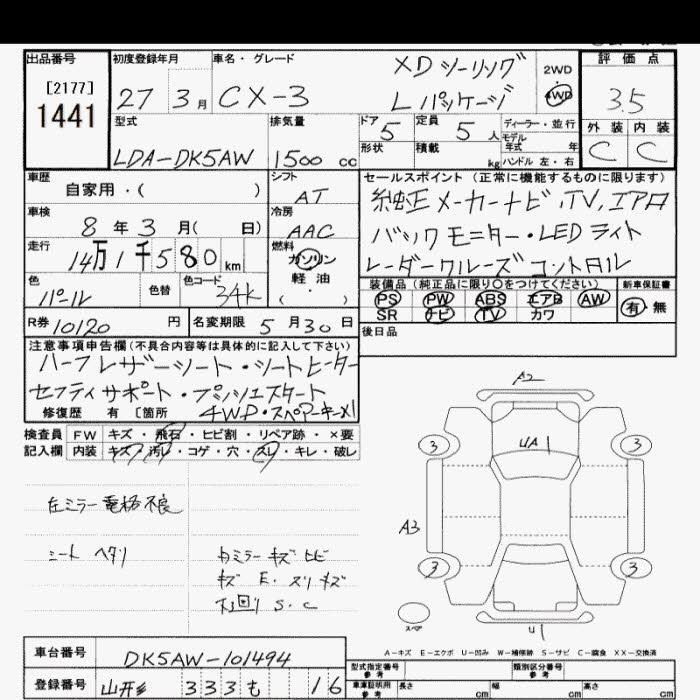 出品番号 初度登録年月 車名・グレード 評価点
[2177]
1441
27 3月 CX-3
XDツーリング
Lパッケージ
2WD
4WD
3.5
型式 排気量 ドア 定員 ディーラー・並行
LDA-DK5AW 1500 cc 5 5人
モデル年式 年
形状 積載 kg ハンドル 左・右
外装 内装
C C
車歴 シフト セールスポイント (正常に機能するものに限ります)
自家用・( ) AT
純正メーカーナビ,TV,エアロ
車検 冷房
8年3月( 日) AAC
バックモニター・LEDライト
走行 燃料
14万1千580km ガソリン
軽油
・( )
レーダークルーズコントロール
色 色替 色コード
パール 34K
装備品 (純正品に限り○をつけてください) 新車保証書
PS PW ABS エアB AW 有・無
SR ナビ TV カワ
R券 10120円 名変期限 5月30日
後日品
注意事項申告欄 (不具合内容等は具体的に記入して下さい)
ハーフレザーシート・シートヒーター
セフティサポート・プッシュスタート
修復歴 有 [箇所 4WD・スペアキー×1
検査員 FW キズ・飛石・ヒビ割・リペア跡・×要
記入欄 内装 キズ・汚レ・コゲ・穴・スレ・キレ・破レ
A2
UA1
3 3
左ミラー電格不良
A3
シート ヘタリ
内ミラー キズ ヒビ
キズ E. スリキズ
下回り S.C
3 3
スペア
U1
A-キズ E-エクボ U-凹み W-補修跡 S-サビ C-腐食 XX-交換済
車台番号 DK5AW-101494
型式指定番号 参考 類別区分番号 参考
登録番号 山形 333 も 16
車庫証明用 参考 長さ cm 幅 cm 高さ cm